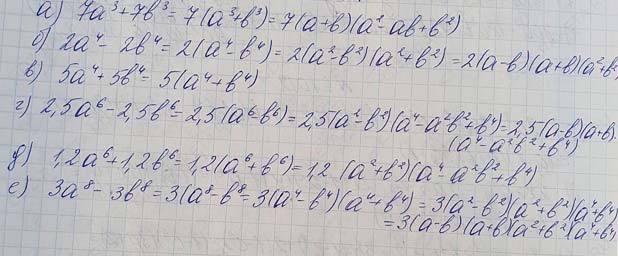 а) 7a³+7b³=7(a³+b³)=7(a+b)(a²-ab+b²)
б) 2a⁴-2b⁴=2(a⁴-b⁴)=2(a²-b²)(a²+b²)=2(a-b)(a+b)(a²+b²
в) 5a⁴+5b⁴=5(a⁴+b⁴)
г) 2,5a⁶-2,5b⁶=2,5(a⁶-b⁶)=2,5(a²-b²)(a⁴-a²b²+b⁴)=2,5(a-b)(a+b)·
(a⁴-a²b²+b⁴)
д) 1,2a⁶+1,2b⁶=1,2(a⁶+b⁶)=1,2 (a²+b²)(a⁴-a²b²+b⁴)
е) 3a⁸-3b⁸=3(a⁸-b⁸=3(a⁴-b⁴)(a⁴+b⁴)=3(a²-b²)(a²+b²)(a⁴+b⁴)
=3(a-b)(a+b)(a²+b²)(a⁴+b⁴